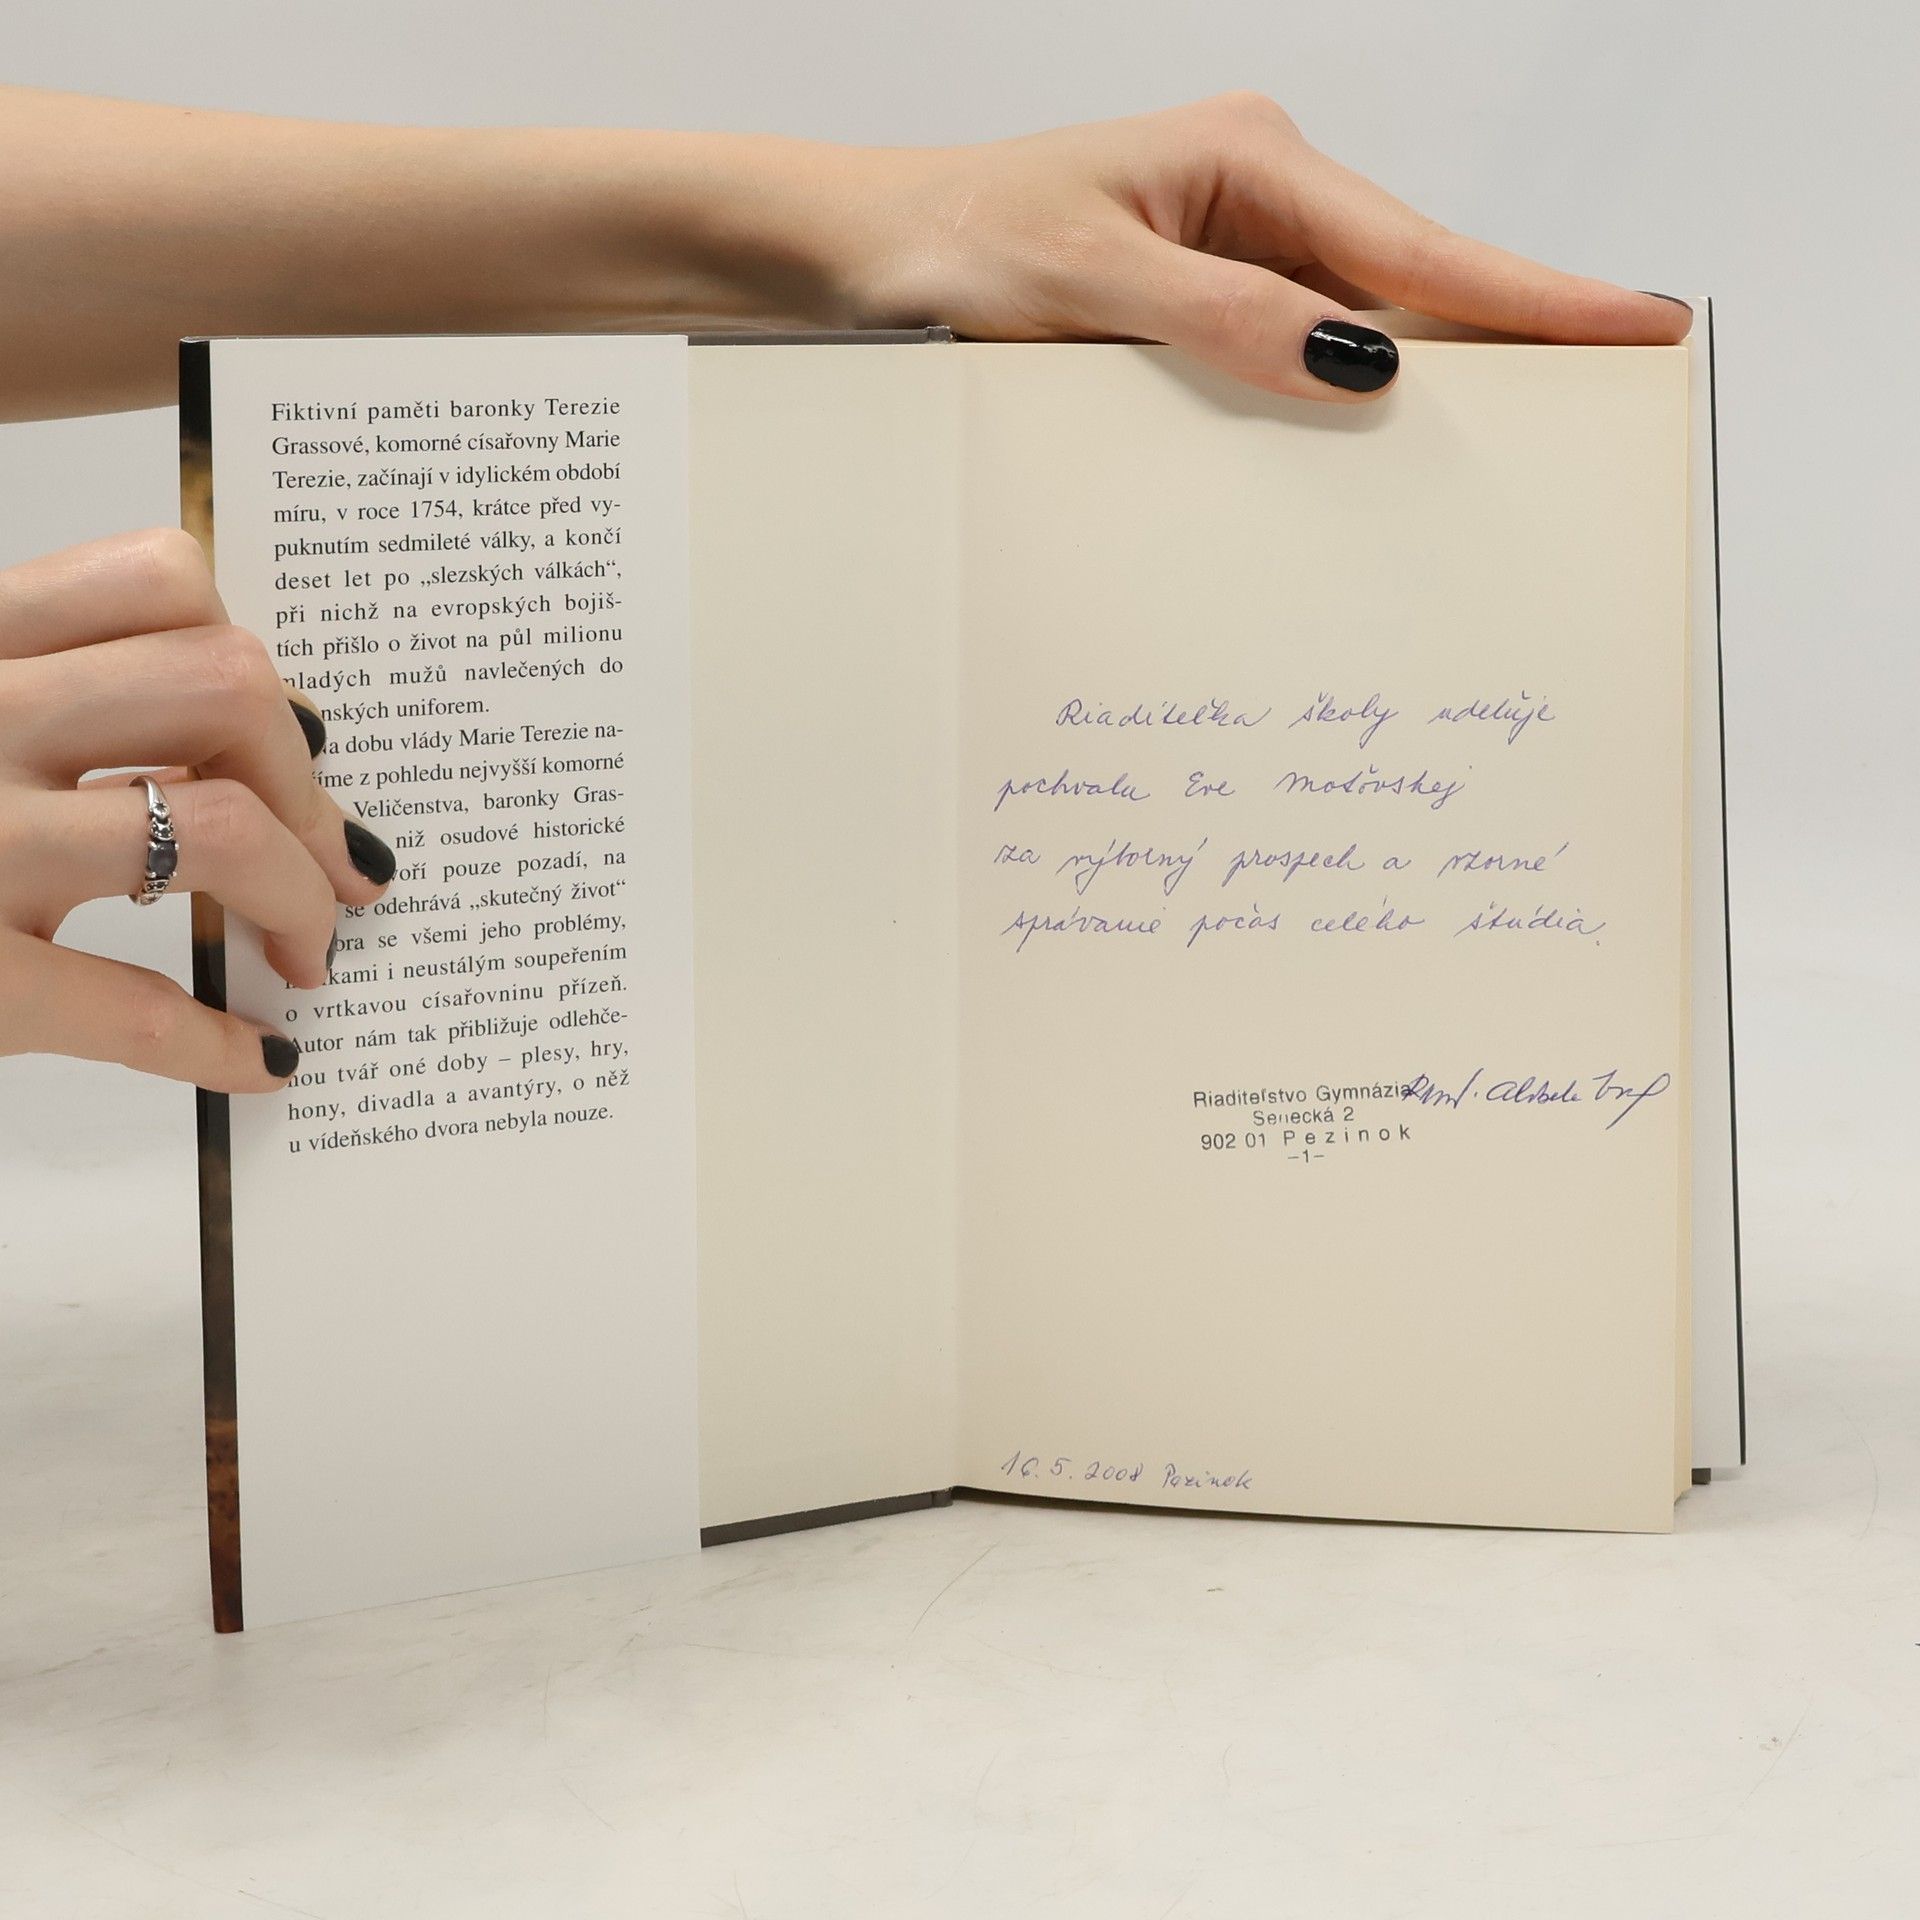 Fiktivní paměti baronky Terezie
Grassové, komorné císařovny Marie
Terezie, začínají v idylickém období
míru, v roce 1754, krátce před vy-
puknutím sedmileté války, a končí
deset let po „slezských válkách“,
při nichž na evropských bojiš-
tích přišlo o život na půl milionu
mladých mužů navlečených do
nských uniforem.
Na dobu vlády Marie Terezie na-
íme z pohledu nejvyšší komorné
Veličenstva, baronky Gras-
niž osudové historické
voří pouze pozadí, na
se odehrává „skutečný život“
ora se všemi jeho problémy,
kami i neustálým soupeřením
o vrtkavou císařovninu přízeň.
Autor nám tak přibližuje odlehče-
nou tvář oné doby – plesy, hry,
hony, divadla a avantýry, o něž
u vídeňského dvora nebyla nouze.
Riaditeľka školy udeľuje
pochvalu Eve Moťovskej
za výborný prospech a vzorné
správanie počas celého štúdia.
Riaditeľstvo Gymnázia
Senecká 2
902 01 Pezinok
–1–
16. 5. 2008 Pezinok